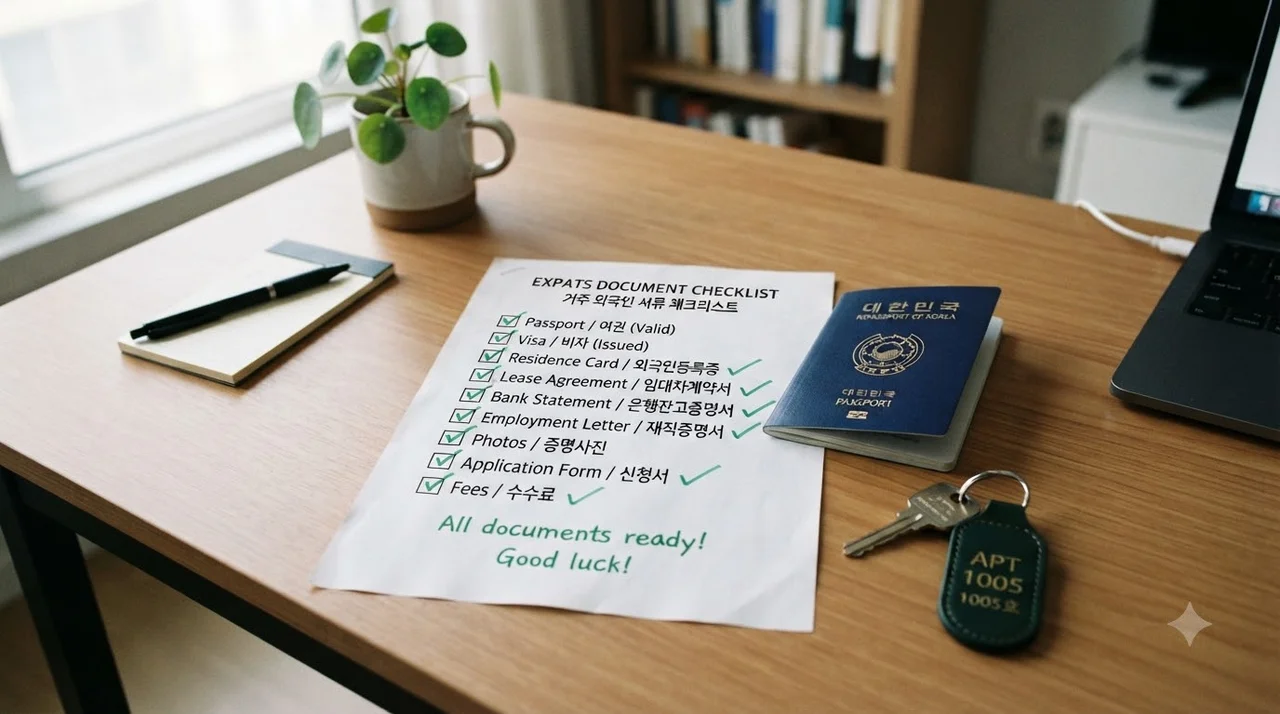 EXPATS DOCUMENT CHECKLIST
거주 외국인 서류 체크리스트
Passport / 여권 (Valid)
Visa / 비자 (Issued)
Residence Card / 외국인등록증
Lease Agreement / 임대차계약서
Bank Statement / 은행잔고증명서
Employment Letter / 재직증명서
Photos / 증명사진
Application Form / 신청서
Fees / 수수료
All documents ready!
Good luck!
대한민국
대한민국
PASSPORT
APT
1005
1005호